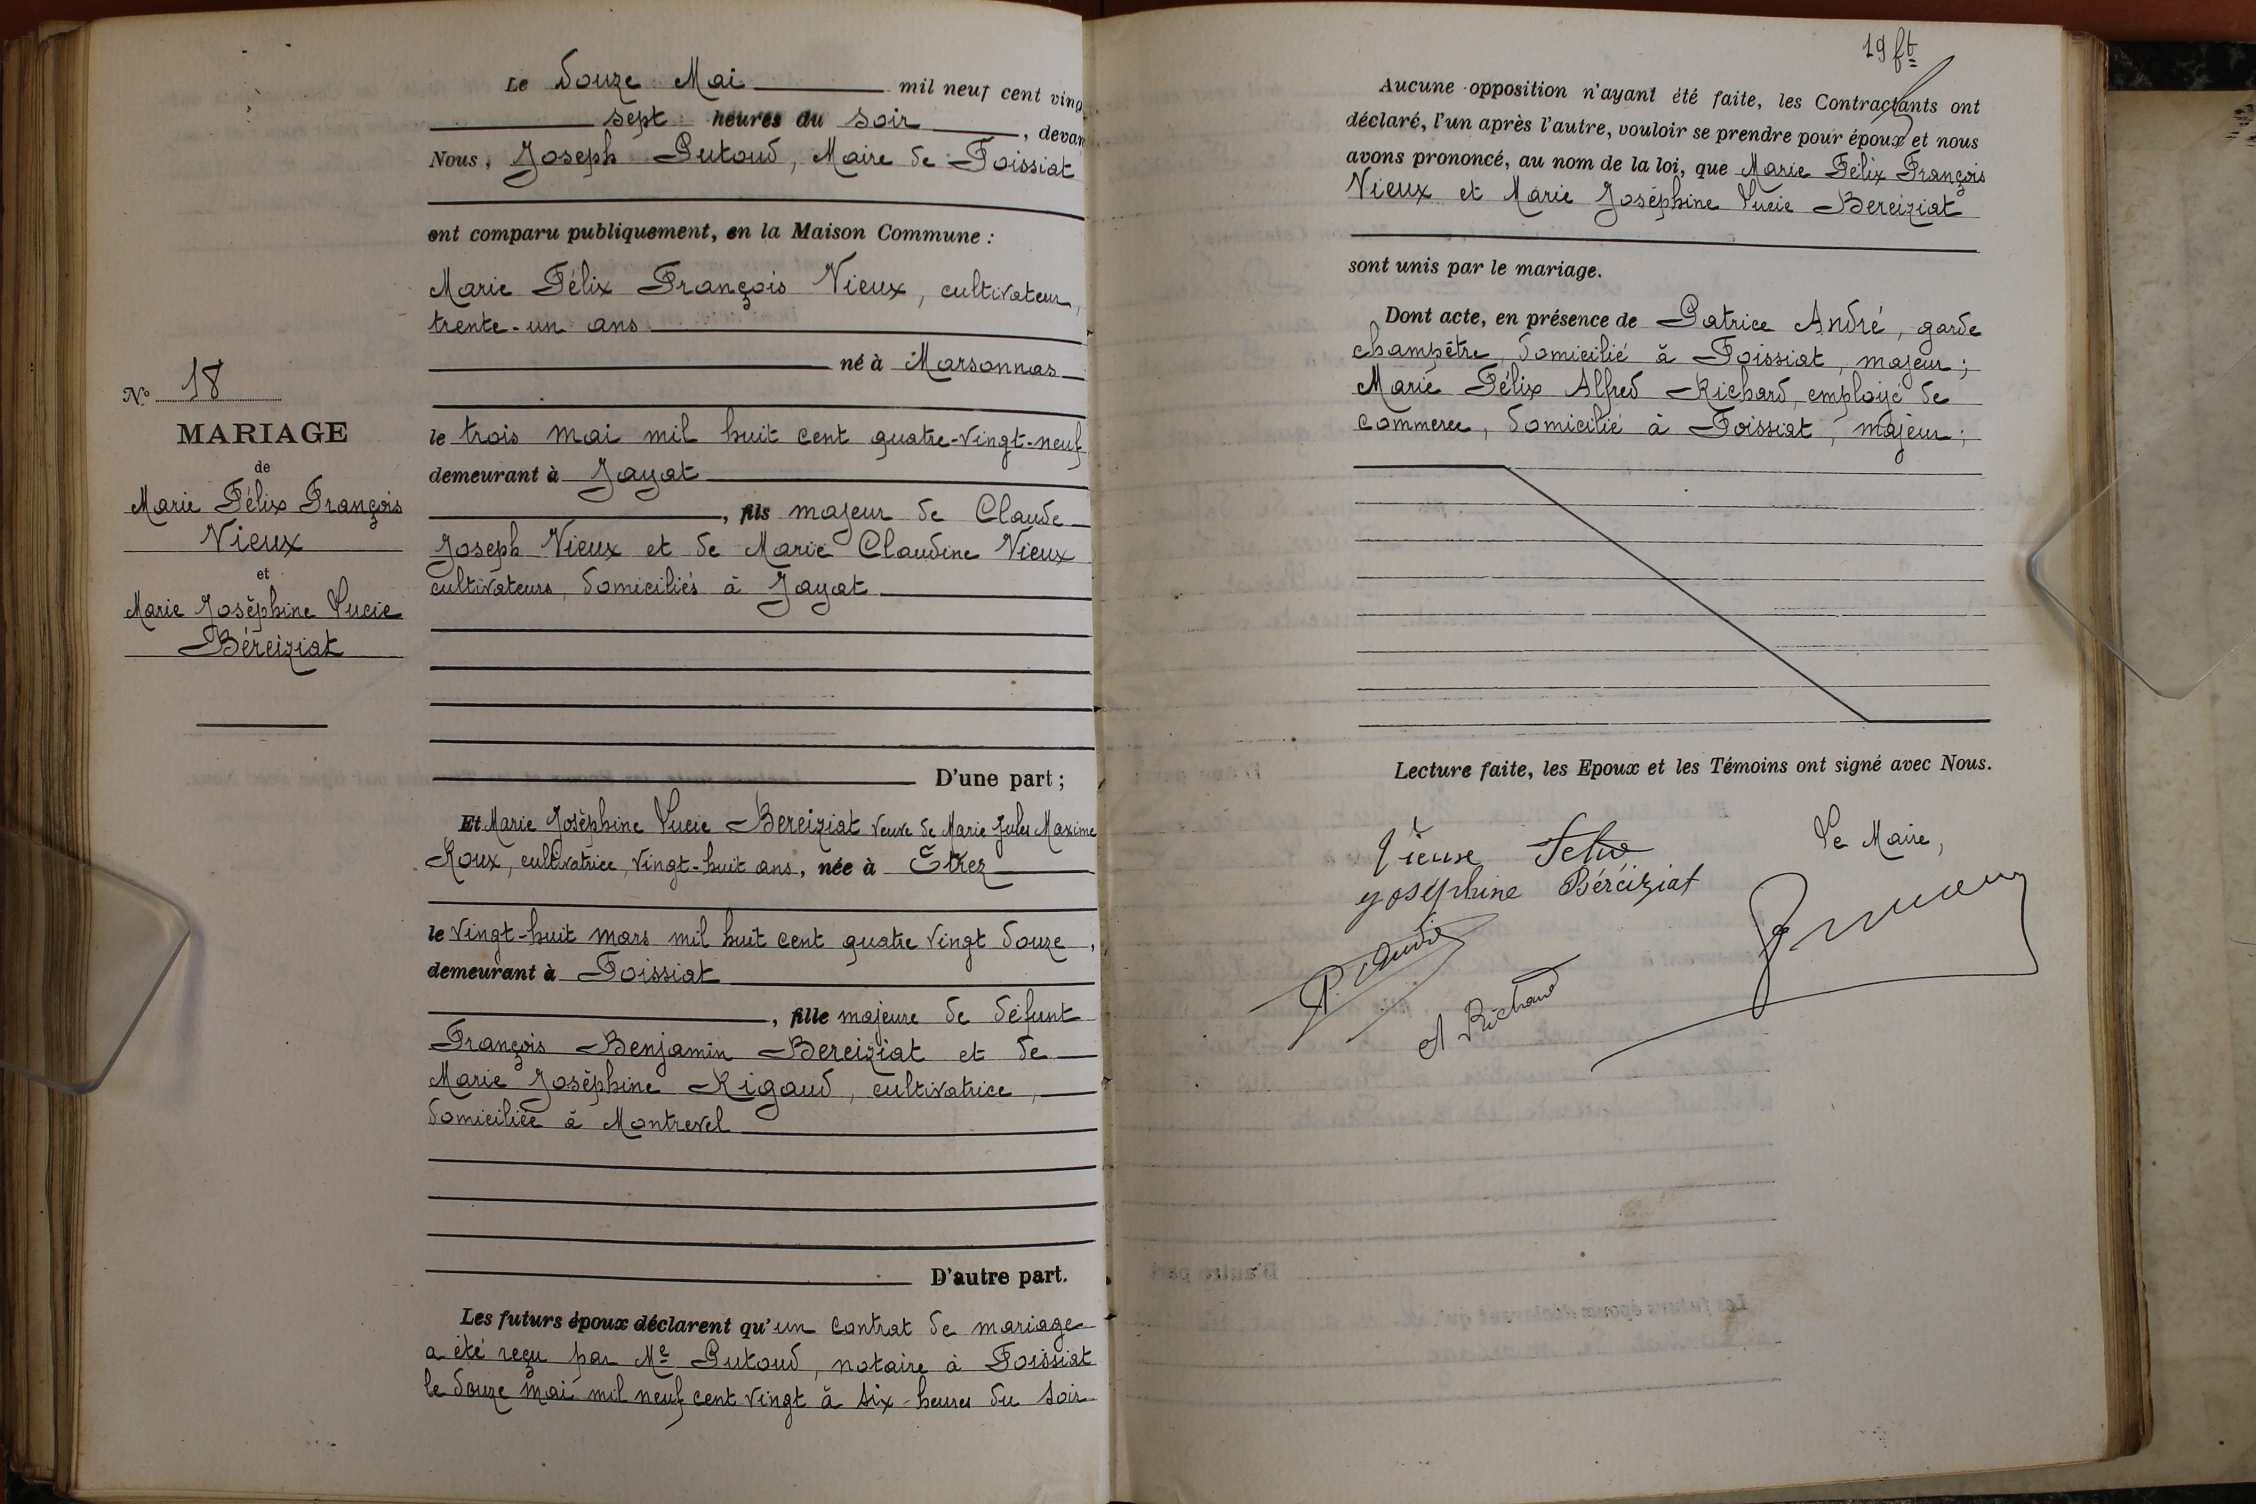 Le douze Mai mil neuf cent vingt
sept heures du soir, devan
Nous, Joseph Putoud, Maire de Foissiat
ont comparu publiquement, en la Maison Commune :
Marie Félix François Vieux, cultivateur,
trente-un ans
né à Marsonnas
le trois mai mil huit cent quatre-vingt-neuf
demeurant à Jayat
, fils majeur de Claude
Joseph Vieux et de Marie Claudine Vieux
cultivateurs, domiciliés à Jayat
D'une part ;
Et Marie Joséphine Lucie Bereiziat veuve de Marie Jules Maxime
Roux, cultivatrice, vingt-huit ans, née à Etrez
le vingt-huit mars mil huit cent quatre vingt douze,
demeurant à Foissiat
, fille majeure de défunt
François Benjamin Bereiziat et de
Marie Joséphine Rigaud, cultivatrice,
domiciliée à Montrevel
D'autre part.
Les futurs époux déclarent qu'un contrat de mariage
a été reçu par Me Putoud, notaire à Foissiat
le douze mai mil neuf cent vingt à six heures du soir
No 18
MARIAGE
de
Marie Félix François
Vieux
et
Marie Joséphine Lucie
Béreiziat
19 ft
Aucune opposition n'ayant été faite, les Contractants ont
déclaré, l'un après l'autre, vouloir se prendre pour époux et nous
avons prononcé, au nom de la loi, que Marie Félix François
Vieux et Marie Joséphine Lucie Bereiziat
sont unis par le mariage.
Dont acte, en présence de Patrice André, garde
champêtre, domicilié à Foissiat, majeur ;
Marie Félix Alfred Richard, employé de
commerce, domicilié à Foissiat, majeur ;
Lecture faite, les Epoux et les Témoins ont signé avec Nous.
Vieux Felix
Le Maire,
Joséphine Béréiziat
P. André
A Richard